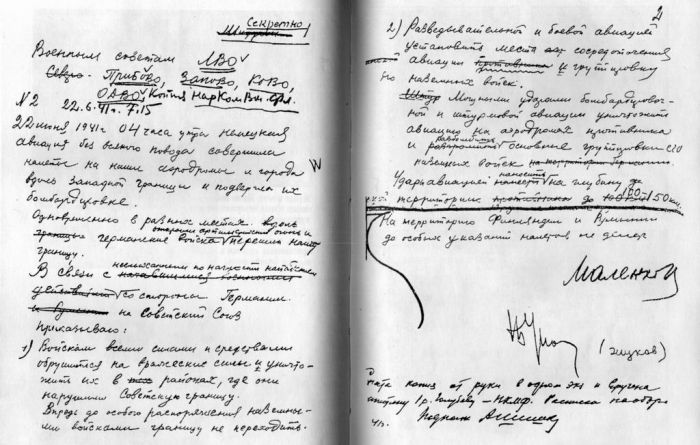 Секретно
Военным советам ЛВО
ПрибОВО, ЗапОВО, КОВО,
ОдВО, Копия НарКомВн. Фл.
N2 22.6.41г. 7.15
22 июня 1941г 04 часа утра немецкая
авиация без всякого повода совершила
налеты на наши аэродромы и города
вдоль западной границы и подвергла их
бомбардировке.
Одновременно в разных местах
германские войска открыли артиллерийский огонь и перешли нашу
границу.
В связи с неслыханным по наглости нападением
со стороны Германии
на Советский Союз
Приказываю:
1) Войскам всеми силами и средствами
обрушиться на вражеские силы и уничто-
жить их в районах, где они
нарушили Советскую границу.
Впредь до особого распоряжения наземны-
ми войсками границу не переходить.
2
2) Разведывательной и боевой авиацией
установить места сосредоточения
авиации противника и группировку
его наземных войск.
Мощными ударами бомбардировоч-
ной и штурмовой авиации уничтожить
авиацию на аэродромах противника
и разбомбить основные группировки его
наземных войск
Удары авиацией наносить на глубину
территории до 100-150 км.
На территорию Финляндии и Румынии
до особых указаний налетов не делать
Маленков
(Жуков)
копия от руки в одном экз и вручена